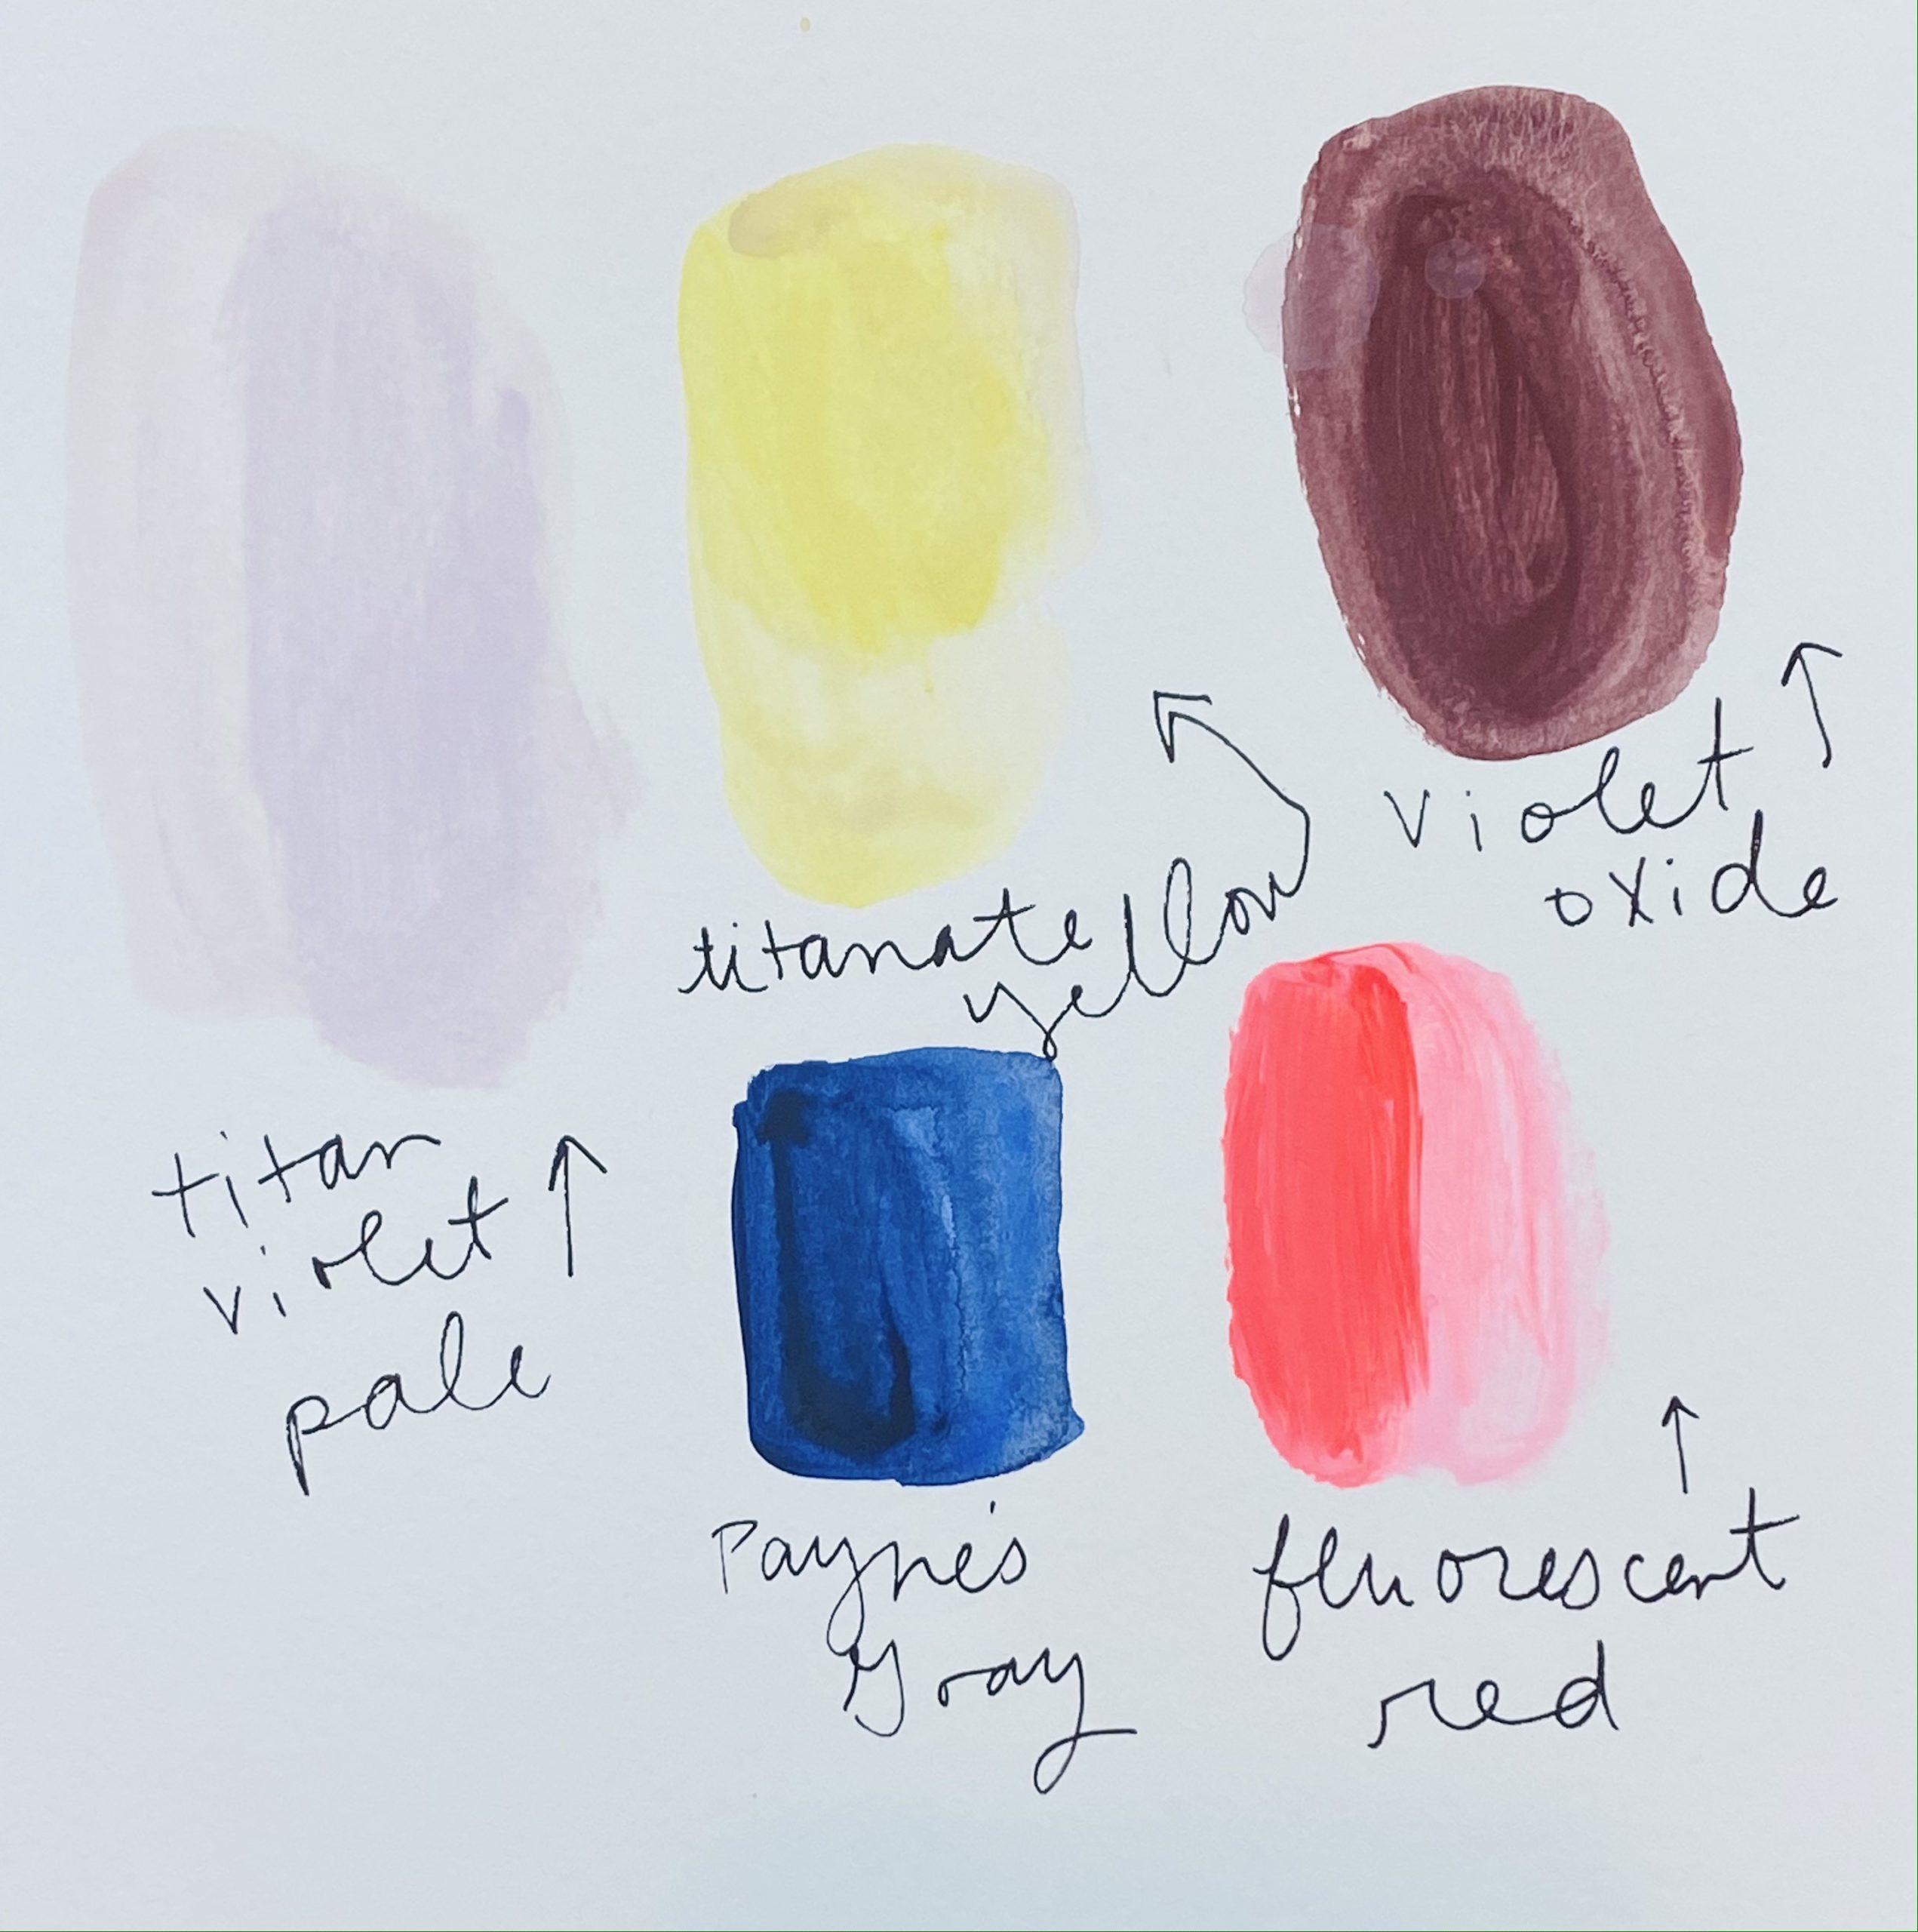 titan
violet
pale
titanate
yellow
violet
oxide
Payne's
Gray
fluorescent
red